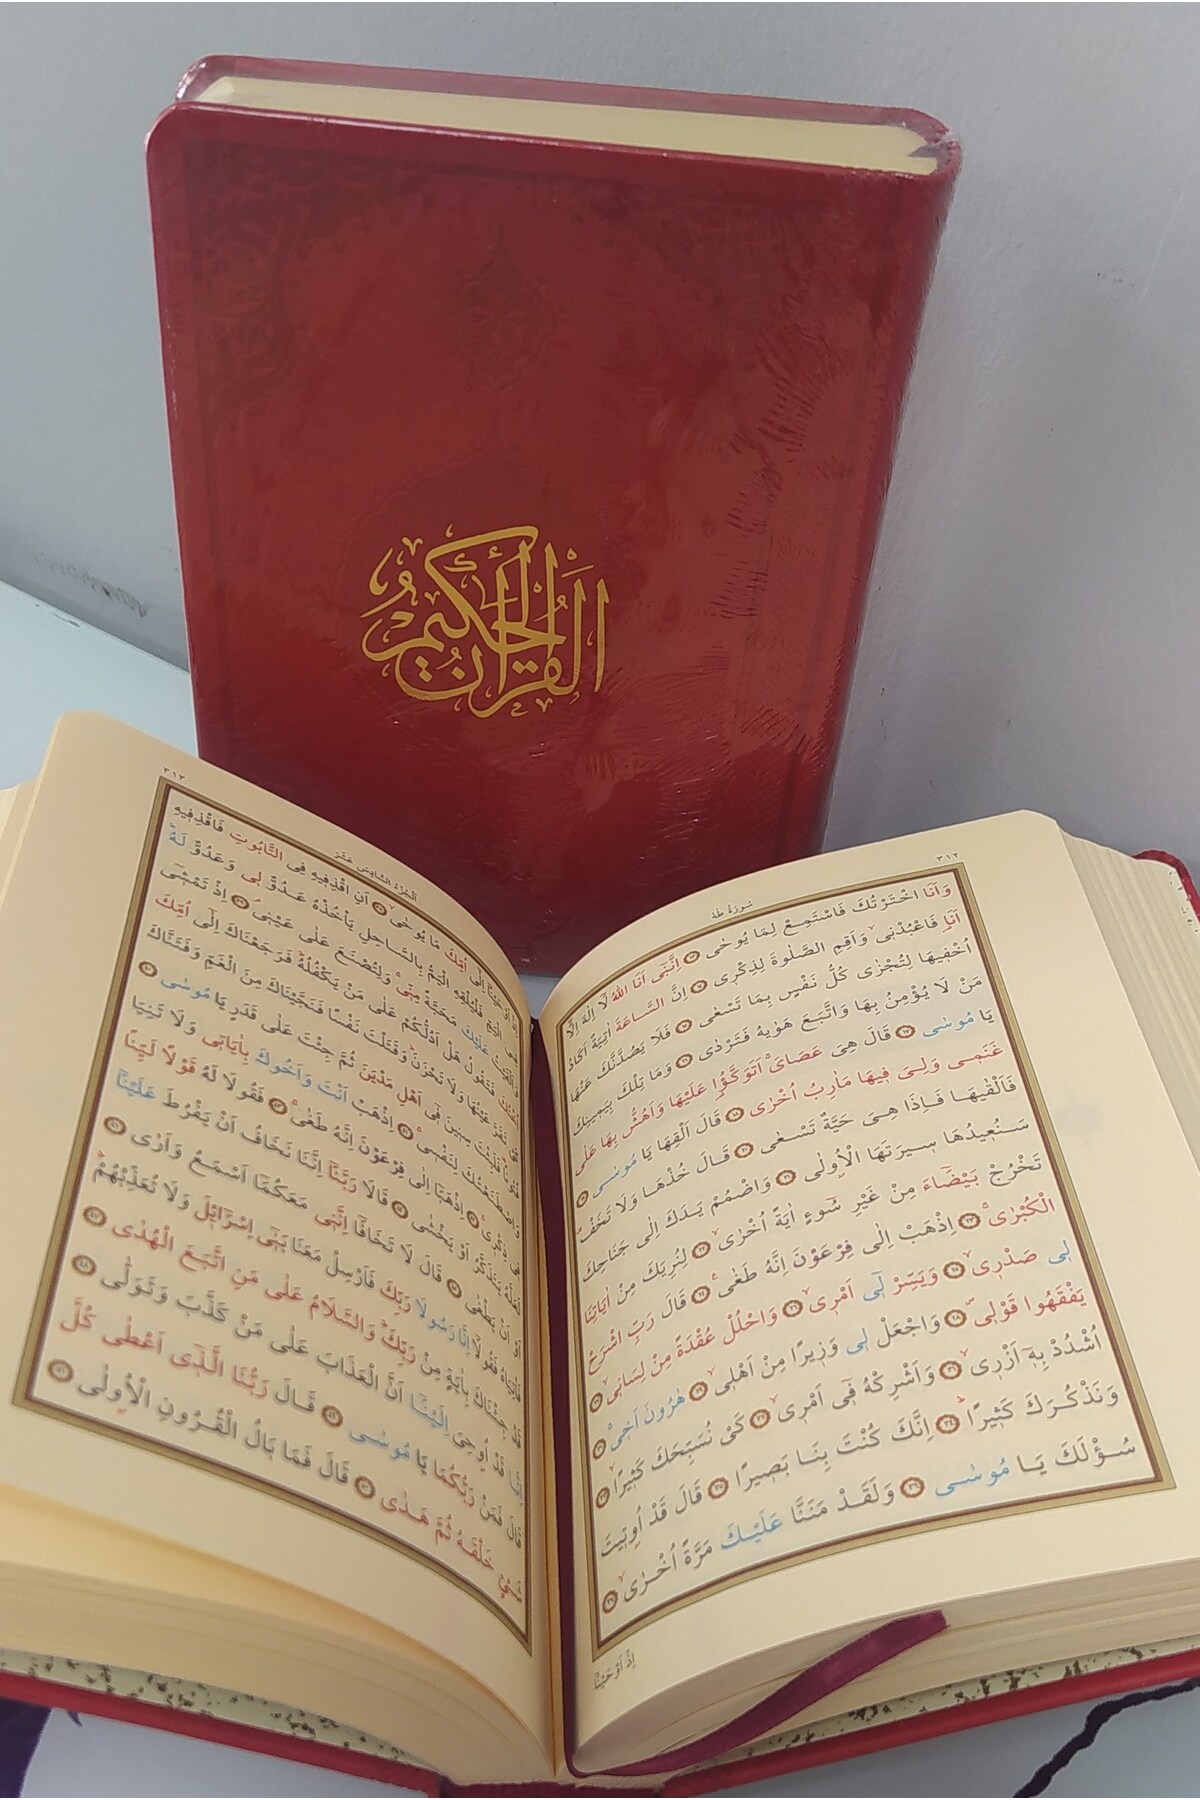 القرآن الحكيم
٣١٢
سُورَةُ طٰهٰ
وَاَنَا اخْتَرْتُكَ فَاسْتَمِعْ لِمَا يُوحٰى ﴿١٣﴾ اِنَّنٖٓى اَنَا اللّٰهُ لَٓا اِلٰهَ اِلَّٓا
اَنَا۬ فَاعْبُدْنٖى وَاَقِمِ الصَّلٰوةَ لِذِكْرٖى ﴿١٤﴾ اِنَّ السَّاعَةَ اٰتِيَةٌ اَكَادُ
اُخْفٖيهَا لِتُجْزٰى كُلُّ نَفْسٍ بِمَا تَسْعٰى ﴿١٥﴾ فَلَا يَصُدَّنَّكَ عَنْهَا
مَنْ لَا يُؤْمِنُ بِهَا وَاتَّبَعَ هَوٰيهُ فَتَرْدٰى ﴿١٦﴾ وَمَا تِلْكَ بِيَمٖينِكَ
يَا مُوسٰى ﴿١٧﴾ قَالَ هِىَ عَصَاىَ اَتَوَكَّؤُا عَلَيْهَا وَاَهُشُّ بِهَا عَلٰى
غَنَمٖى وَلِىَ فٖيهَا مَاٰرِبُ اُخْرٰى ﴿١٨﴾ قَالَ اَلْقِهَا يَا مُوسٰى ﴿١٩﴾
فَاَلْقٰيهَا فَاِذَا هِىَ حَيَّةٌ تَسْعٰى ﴿٢٠﴾ قَالَ خُذْهَا وَلَا تَخَفْ
سَنُعٖيدُهَا سٖيرَتَهَا الْاُو۫لٰى ﴿٢١﴾ وَاضْمُمْ يَدَكَ اِلٰى جَنَاحِكَ
تَخْرُجْ بَيْضَٓاءَ مِنْ غَيْرِ سُٓوءٍ اٰيَةً اُخْرٰى ﴿٢٢﴾ لِنُرِيَكَ مِنْ اٰيَاتِنَا
الْكُبْرٰى ﴿٢٣﴾ اِذْهَبْ اِلٰى فِرْعَوْنَ اِنَّهُ طَغٰى ﴿٢٤﴾ قَالَ رَبِّ اشْرَحْ
لٖى صَدْرٖى ﴿٢٥﴾ وَيَسِّرْ لٖٓى اَمْرٖى ﴿٢٦﴾ وَاحْلُلْ عُقْدَةً مِنْ لِسَانٖى ﴿٢٧﴾
يَفْقَهُوا قَوْلٖى ﴿٢٨﴾ وَاجْعَلْ لٖى وَزٖيرًا مِنْ اَهْلٖى ﴿٢٩﴾ هٰرُونَ اَخٖى ﴿٣٠﴾
اُشْدُدْ بِهٖٓ اَزْرٖى ﴿٣١﴾ وَاَشْرِكْهُ فٖٓى اَمْرٖى ﴿٣٢﴾ كَىْ نُسَبِّحَكَ كَثٖيرًا ﴿٣٣﴾
وَنَذْكُرَكَ كَثٖيرًا ﴿٣٤﴾ اِنَّكَ كُنْتَ بِنَا بَصٖيرًا ﴿٣٥﴾ قَالَ قَدْ اُو۫تٖيتَ
سُؤْلَكَ يَا مُوسٰى ﴿٣٦﴾ وَلَقَدْ مَنَنَّا عَلَيْكَ مَرَّةً اُخْرٰى ﴿٣٧﴾
اِذْ اَوْحَيْنَٓا
٣١٣
اَلْجُزْءُ السَّادِسَ عَشَرَ
اِذْ اَوْحَيْنَٓا اِلٰٓى اُمِّكَ مَا يُوحٰى ﴿٣٨﴾ اَنِ اقْذِفٖيهِ فِى التَّابُوتِ فَاقْذِفٖيهِ
فِى الْيَمِّ فَلْيُلْقِهِ الْيَمُّ بِالسَّاحِلِ يَأْخُذْهُ عَدُوٌّ لٖى وَعَدُوٌّ لَهُ
وَاَلْقَيْتُ عَلَيْكَ مَحَبَّةً مِنّٖى وَلِتُصْنَعَ عَلٰى عَيْنٖى ﴿٣٩﴾ اِذْ تَمْشٖٓى
اُخْتُكَ فَتَقُولُ هَلْ اَدُلُّكُمْ عَلٰى مَنْ يَكْفُلُهُ فَرَجَعْنَاكَ اِلٰٓى اُمِّكَ
كَىْ تَقَرَّ عَيْنُهَا وَلَا تَحْزَنَ وَقَتَلْتَ نَفْسًا فَنَجَّيْنَاكَ مِنَ الْغَمِّ وَفَتَنَّاكَ
فُتُونًا فَلَبِثْتَ سِنٖينَ فٖٓى اَهْلِ مَدْيَنَ ثُمَّ جِئْتَ عَلٰى قَدَرٍ يَا مُوسٰى ﴿٤٠﴾
وَاصْطَنَعْتُكَ لِنَفْسٖى ﴿٤١﴾ اِذْهَبْ اَنْتَ وَاَخُوكَ بِاٰيَاتٖى وَلَا تَنِيَا
فٖى ذِكْرٖى ﴿٤٢﴾ اِذْهَبَٓا اِلٰى فِرْعَوْنَ اِنَّهُ طَغٰى ﴿٤٣﴾ فَقُولَا لَهُ قَوْلًا لَيِّنًا
لَعَلَّهُ يَتَذَكَّرُ اَوْ يَخْشٰى ﴿٤٤﴾ قَالَا رَبَّنَٓا اِنَّنَا نَخَافُ اَنْ يَفْرُطَ عَلَيْنَٓا
اَوْ اَنْ يَطْغٰى ﴿٤٥﴾ قَالَ لَا تَخَافَٓا اِنَّنٖى مَعَكُمَٓا اَسْمَعُ وَاَرٰى ﴿٤٦﴾
فَاْتِيَاهُ فَقُولَٓا اِنَّا رَسُولَا رَبِّكَ فَاَرْسِلْ مَعَنَا بَنٖٓى اِسْرَٓائٖلَ وَلَا تُعَذِّبْهُمْ
قَدْ جِئْنَاكَ بِاٰيَةٍ مِنْ رَبِّكَ وَالسَّلَامُ عَلٰى مَنِ اتَّبَعَ الْهُدٰى ﴿٤٧﴾
اِنَّا قَدْ اُو۫حِىَ اِلَيْنَٓا اَنَّ الْعَذَابَ عَلٰى مَنْ كَذَّبَ وَتَوَلّٰى ﴿٤٨﴾
قَالَ فَمَنْ رَبُّكُمَا يَا مُوسٰى ﴿٤٩﴾ قَالَ رَبُّنَا الَّذٖٓى اَعْطٰى كُلَّ
شَىْءٍ خَلْقَهُ ثُمَّ هَدٰى ﴿٥٠﴾ قَالَ فَمَا بَالُ الْقُرُونِ الْاُو۫لٰى ﴿٥١﴾